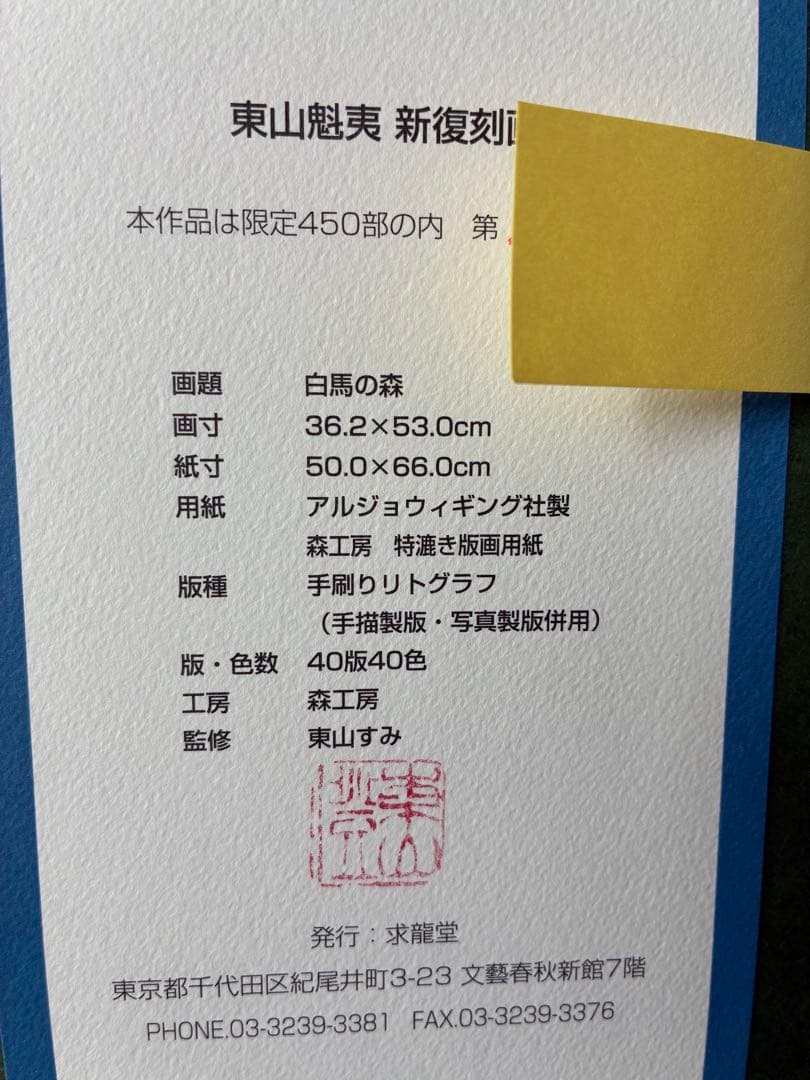 東山魁夷 新復刻
本作品は限定450部の内 第
画題 白馬の森
画寸 36.2×53.0cm
紙寸 50.0×66.0cm
用紙 アルジョウィギング社製
森工房 特漉き版画用紙
版種 手刷りリトグラフ
（手描製版・写真製版併用）
版・色数 40版40色
工房 森工房
監修 東山すみ
発行：求龍堂
東京都千代田区紀尾井町3-23 文藝春秋新館7階
PHONE.03-3239-3381 FAX.03-3239-3376